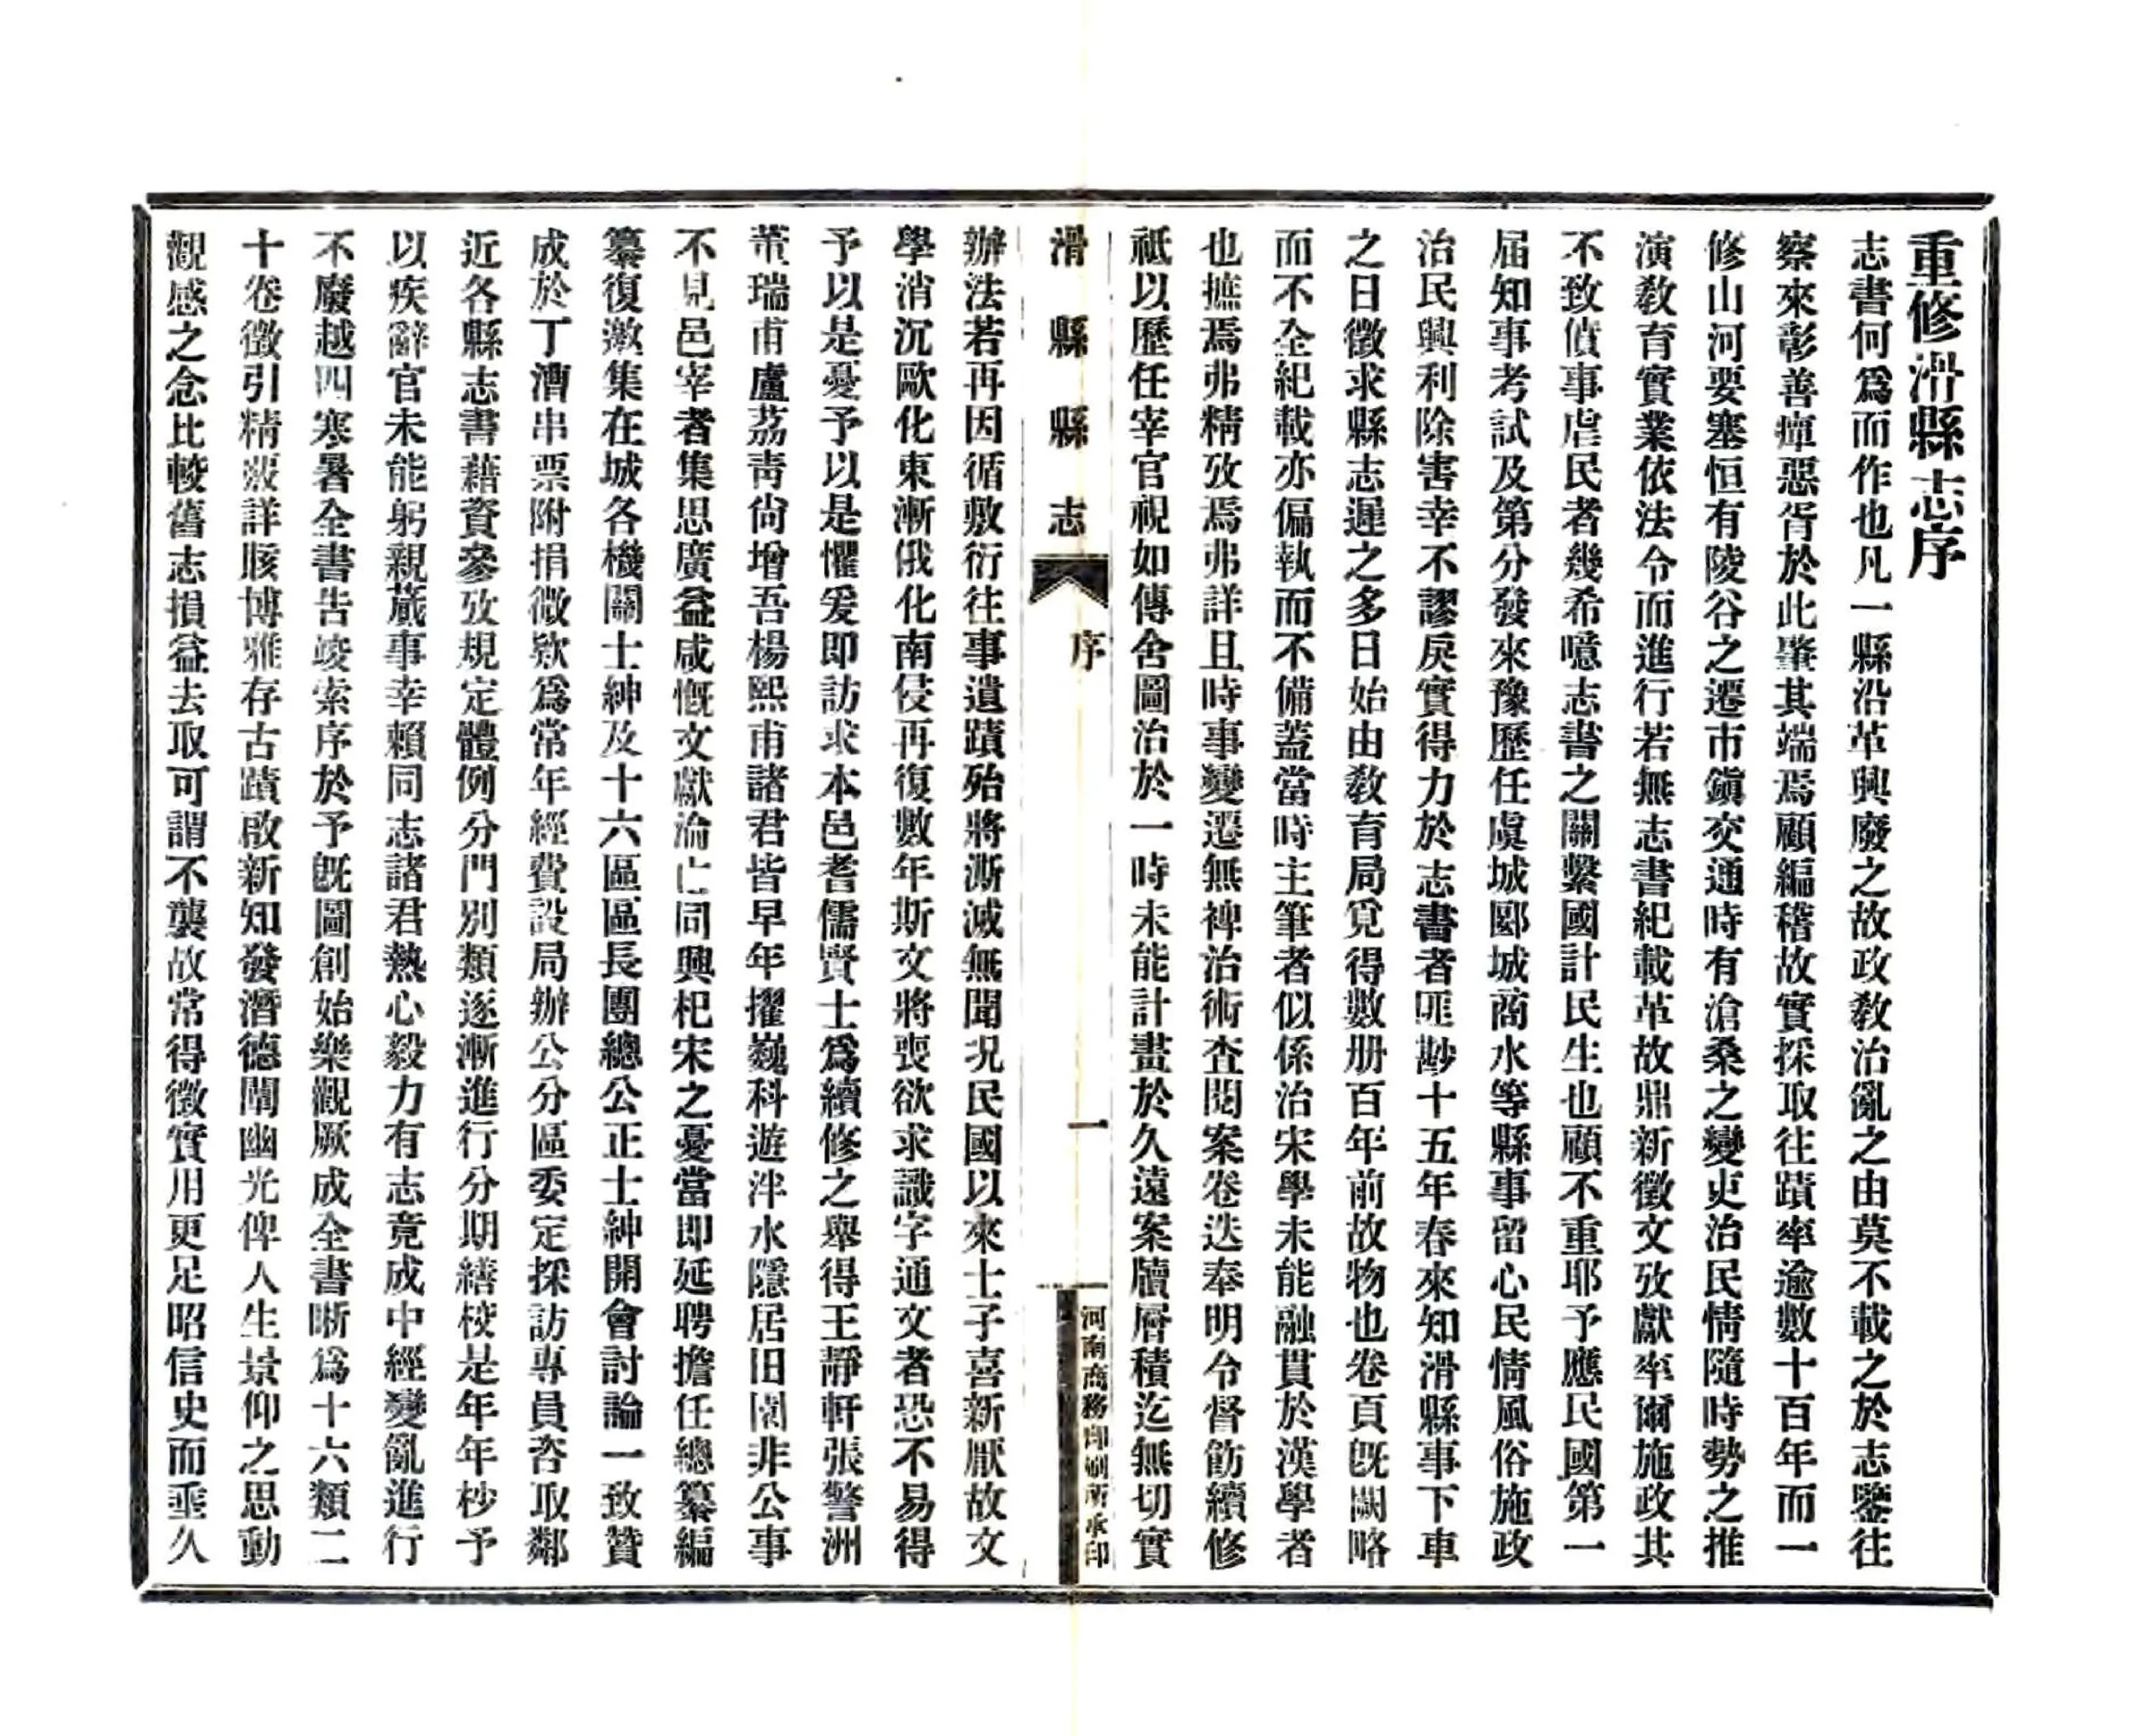 重修滑縣志序
志書何爲而作也凡一縣沿革興廢之故政教治亂之由莫不載之於志鑒往
察來彰善癉惡胥於此肇其端焉顧編稽故實採取往蹟率逾數十百年而一
修山河要塞恒有陵谷之遷市鎭交通時有滄桑之變吏治民情隨時勢之推
演敎育實業依法令而進行若無志書紀載革故鼎新徵文攷獻率爾施政其
不致僨事虐民者幾希噫志書之關繫國計民生也顧不重耶予應民國第一
屆知事考試及第分發來豫歷任虞城郾城商水等縣事留心民情風俗施政
治民興利除害幸不謬戾實得力於志書者匪尠十五年春來知滑縣事下車
之日徵求縣志遲之多日始由敎育局覓得數册百年前故物也卷頁旣闕略
而不全紀載亦偏執而不備蓋當時主筆者似係治宋學未能融貫於漢學者
也摭焉弗精攷焉弗詳且時事變遷無裨治術査閱案卷迭奉明令督飭續修
祗以歷任宰官視如傳舍圖治於一時未能計畫於久遠案牘層積迄無切實
滑縣縣志
序
一
河南商務印刷所承印
辦法若再因循敷衍往事遺蹟殆將澌滅無聞况民國以來士子喜新厭故文
學消沉歐化東漸俄化南侵再復數年斯文將喪欲求識字通文者恐不易得
予以是憂予以是懼爰即訪求本邑耆儒賢士爲續修之舉得王靜軒張警洲
董瑞甫盧荔靑尙增吾楊熙甫諸君皆早年擢巍科遊泮水隱居田園非公事
不見邑宰者集思廣益咸慨文獻淪亡同興杞宋之憂當即延聘擔任總纂編
纂復激集在城各機關士紳及十六區區長團總公正士紳開會討論一致贊
成於丁漕串票附捐微欵爲常年經費設局辦公分區委定採訪專員咨取鄰
近各縣志書藉資參攷規定體例分門別類逐漸進行分期繕校是年年杪予
以疾辭官未能躬親蕆事幸賴同志諸君熱心毅力有志竟成中經變亂進行
不廢越四寒暑全書告竣索序於予旣圖創始樂觀厥成全書晰爲十六類二
十卷徵引精覈詳賅博雅存古蹟啟新知發潛德闡幽光俾人生景仰之思動
觀感之念比較舊志損益去取可謂不襲故常得徵實用更足昭信史而垂久